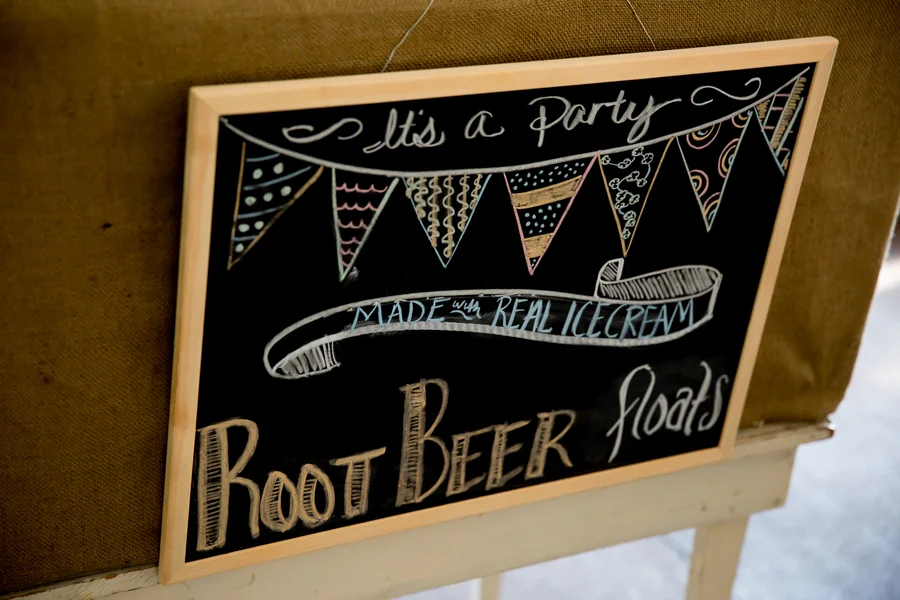 It's a Party
MADE with REAL ICE CREAM
ROOT BEER floats